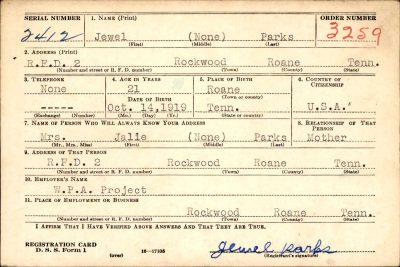 SERIAL NUMBER 1. NAME (Print) ORDER NUMBER
2412 Jewel (None) Parks 3259
(First) (Middle) (Last)
2. ADDRESS (Print)
R.F.D. 2 Rockwood Roane Tenn.
(Number and street or R. F. D. number) (Town) (County) (State)
3. TELEPHONE 4. AGE IN YEARS 5. PLACE OF BIRTH 6. COUNTRY OF CITIZENSHIP
None 21 Roane
DATE OF BIRTH (Town or county)
----- Oct. 14,1919 Tenn. U.S.A.
(Exchange) (Number) (Mo.) (Day) (Yr.) (State or country)
7. NAME OF PERSON WHO WILL ALWAYS KNOW YOUR ADDRESS 8. RELATIONSHIP OF THAT PERSON
Mrs. Jalie (None) Parks Mother
(Mr., Mrs., Miss) (First) (Middle) (Last)
9. ADDRESS OF THAT PERSON
R.F.D. 2 Rockwood Roane Tenn.
(Number and street or R. F. D. number) (Town) (County) (State)
10. EMPLOYER'S NAME
W.P.A. Project
11. PLACE OF EMPLOYMENT OR BUSINESS
Rockwood Roane Tenn.
(Number and street or R. F. D. number) (Town) (County) (State)
I AFFIRM THAT I HAVE VERIFIED ABOVE ANSWERS AND THAT THEY ARE TRUE.
REGISTRATION CARD
D. S. S. Form 1 (over) 16—17105 Jewel Parks
(Registrant's signature)